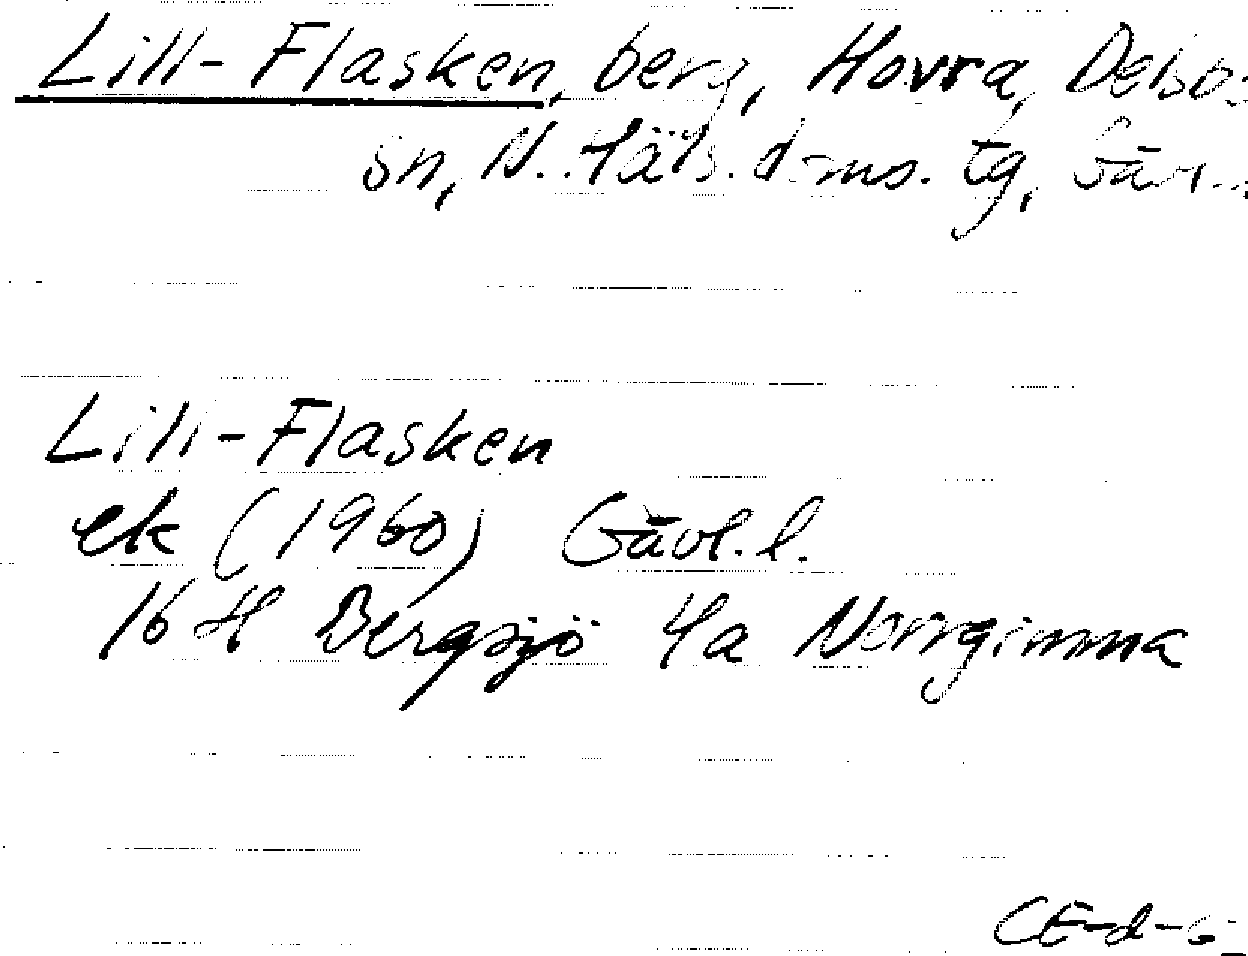 Lill-Flasken, berg, Hovra, Delsbo
sn, N. Häls. d-ms. tg, Gävl.
Lill-Flasken
ek (1960) Gävl.l.
16 H Bergsjö 4a Norrgimma